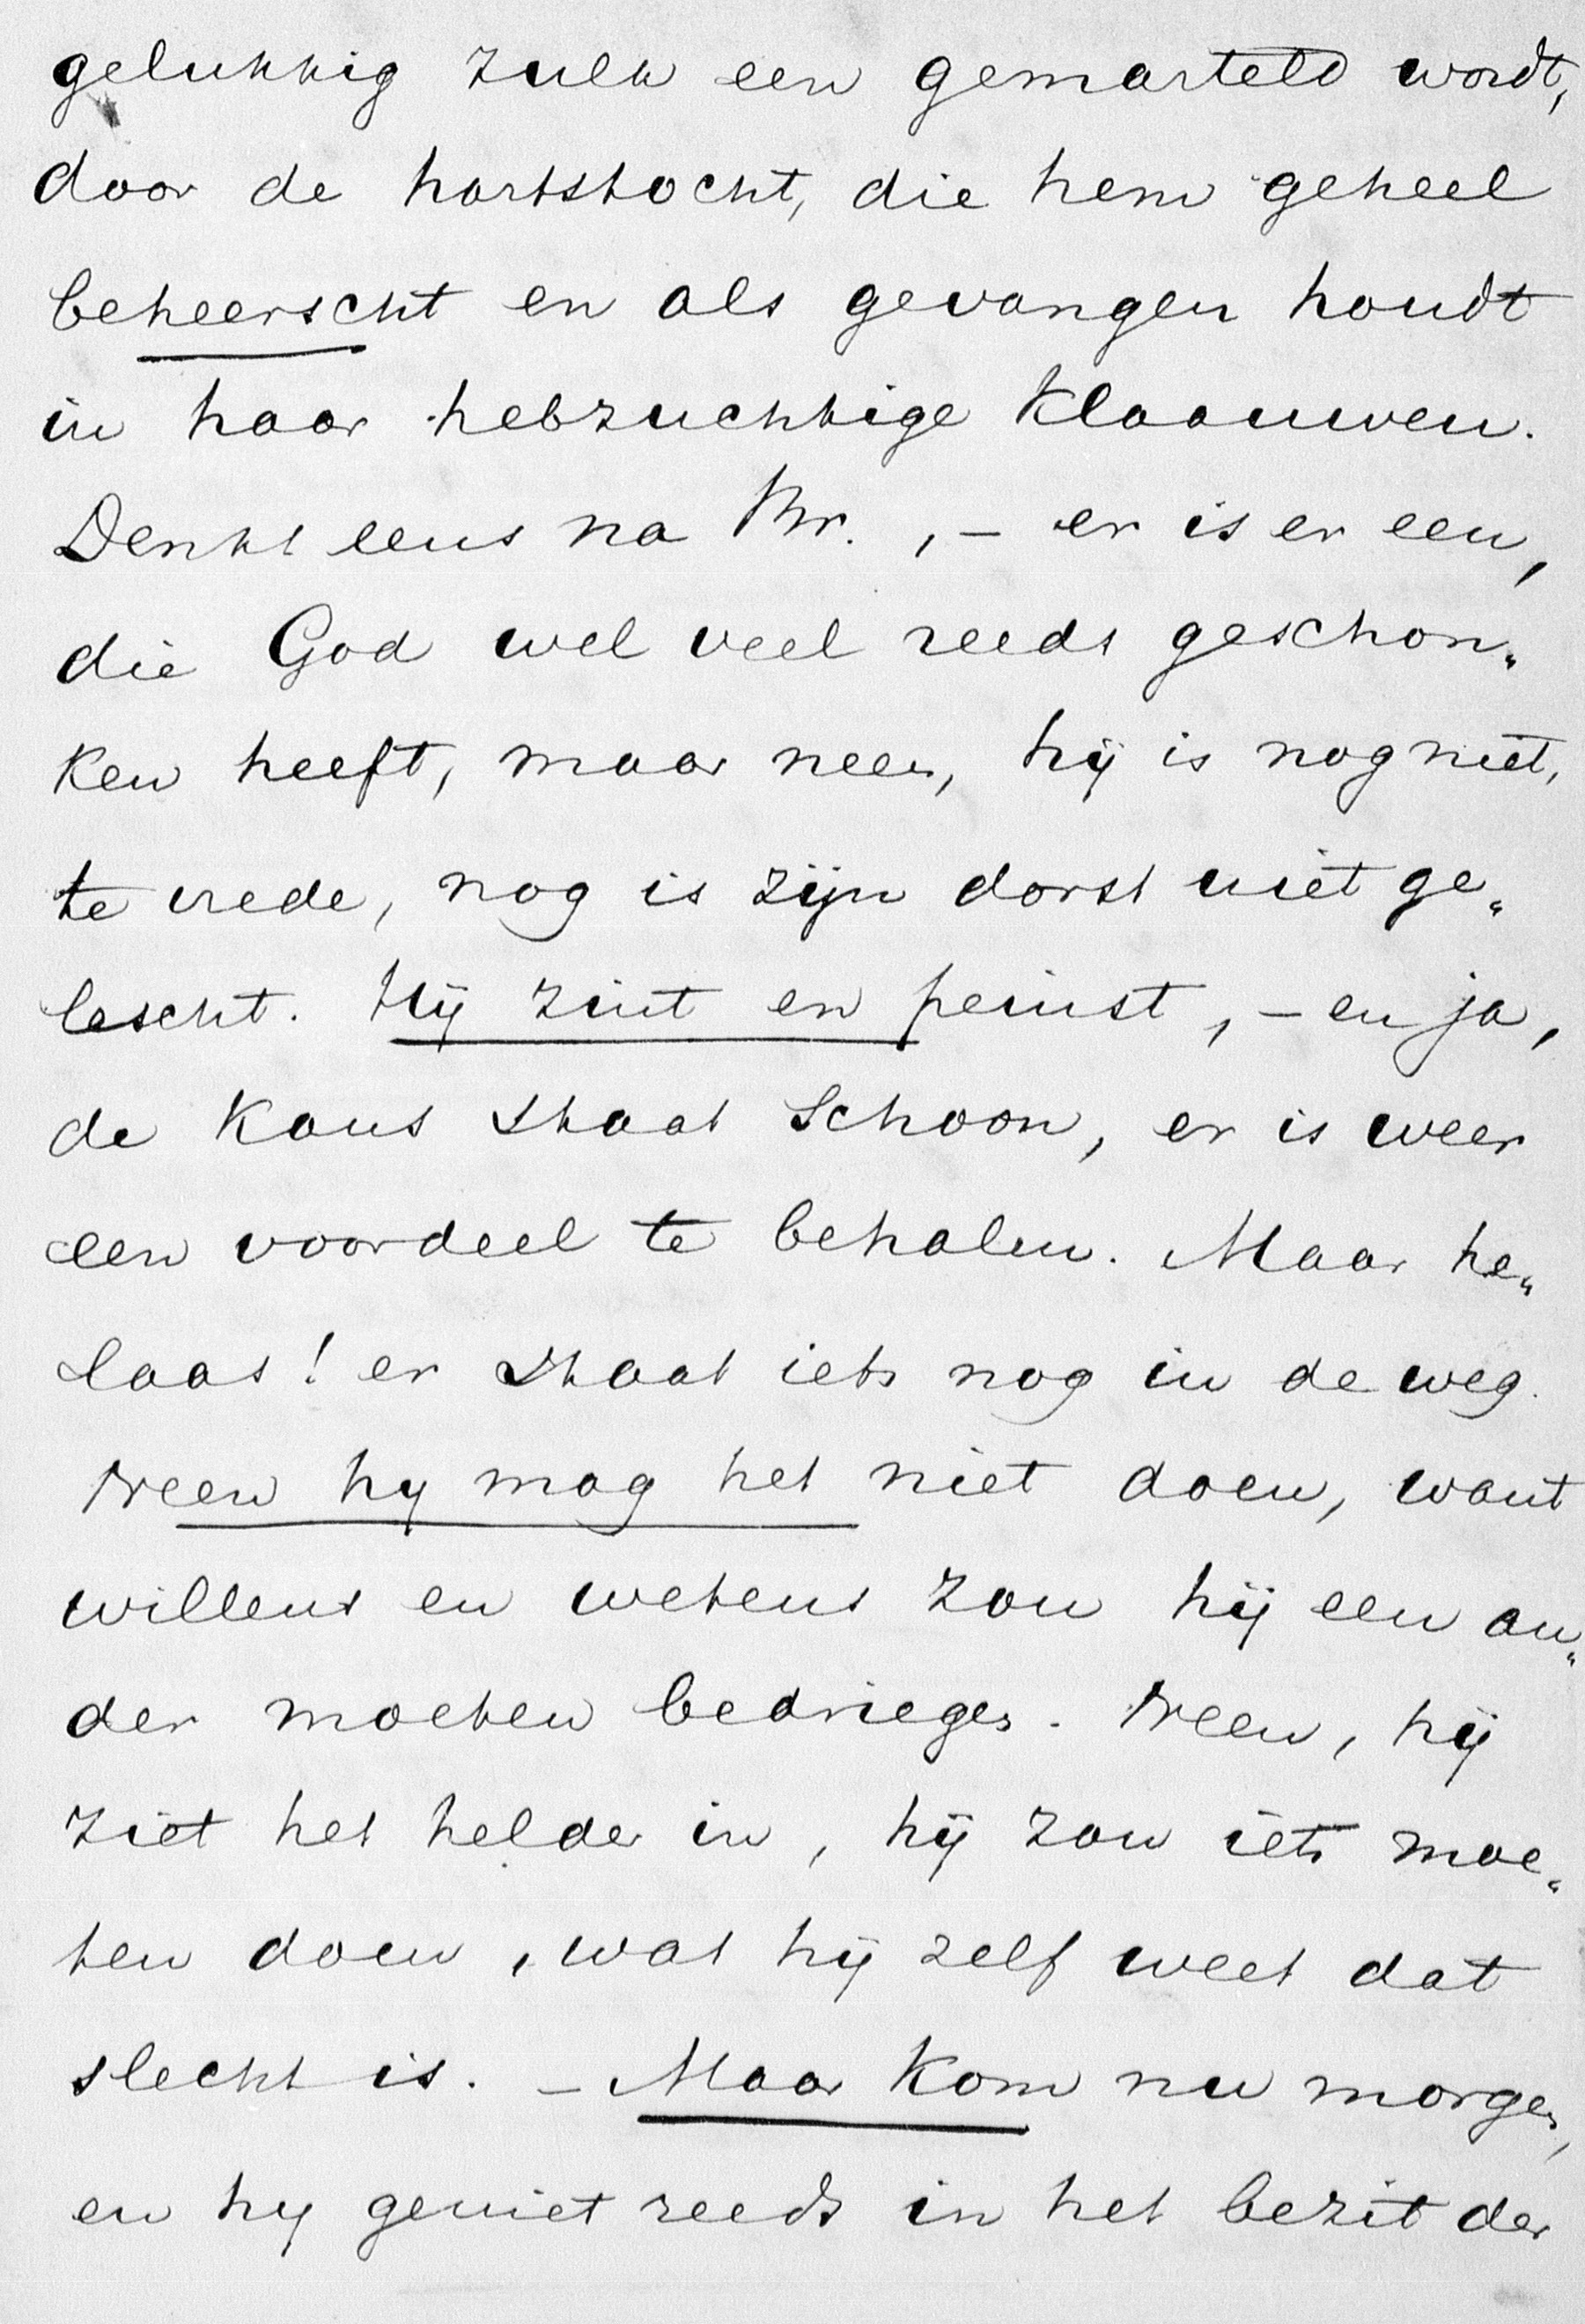 gelukkig zulk een gemarteld wordt,
door de hartstocht, die hem geheel
beheerscht en als gevangen houdt
in haar hebzuchtige klaauwen.
Denkt eens na Br. , – er is er een,
die God wel veel reeds geschon„
ken heeft, maar neen, hij is nog niet,
te vrede, nog is zijn dorst niet ge„
lescht. Hij zint en peinst, – en ja,
de kans staat schoon, er is weer
een voordeel te behalen. Maar he„
laas! er staat iets nog in de weg.
Neen hy mag het niet doen, want
willens en wetens zou hij een an„
der moeten bedriegen. Neen, hij
ziet het helder in, hij zou iets moe„
ten doen, wat hij zelf weet dat
slecht is. – Maar kom nu morgen,
en hy geniet reeds in het bezit der